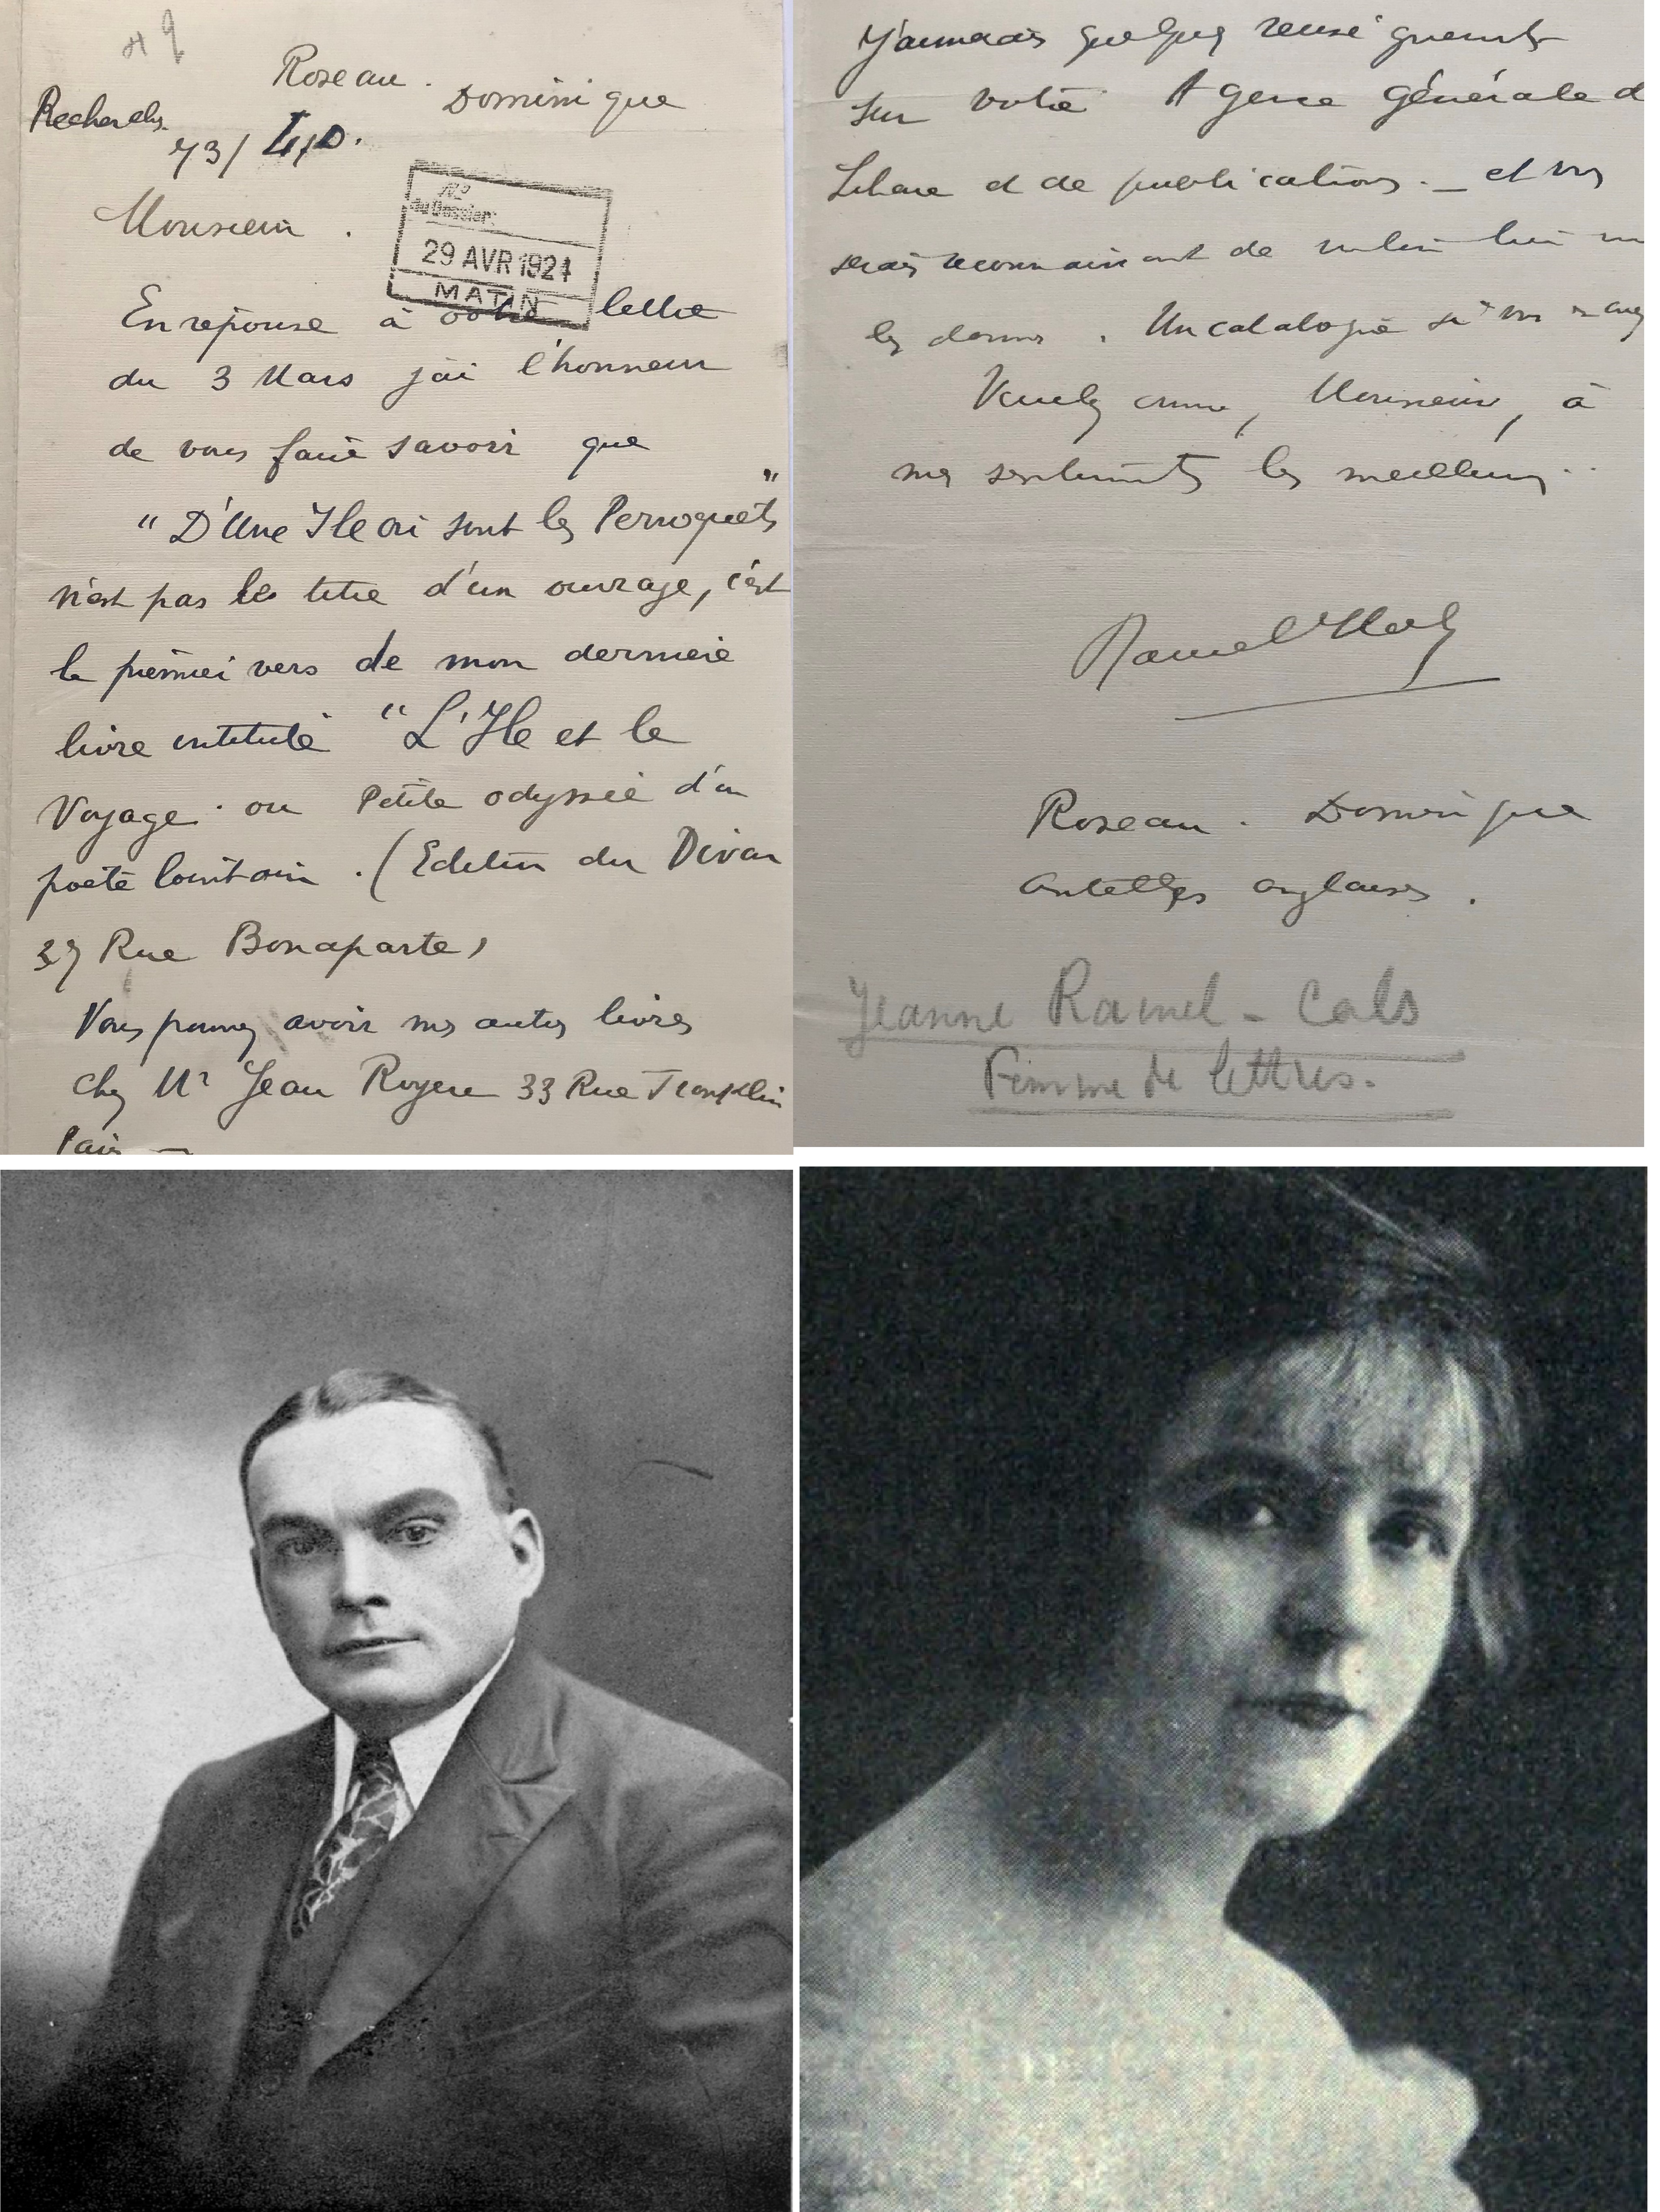 Roseau. Dominique
Recherches
73/
No
du Dossier:
29 AVR 1924
MATIN
Monsieur.
En reponse à votre lettre
du 3 Mars j'ai l'honneur
de vous faire savoir que
"D'Une Ile où sont les Perroquets"
n'est pas le titre d'un ouvrage, c'est
le premier vers de mon dernier
livre intitulé "L'Ile et le
Voyage ou Petite odyssée d'un
poète lointain. (Edition du Divan
37 Rue Bonaparte,
Vous pouvez avoir mes autres livres
chez Mr Jean Royere 33 Rue Franklin
Paris —
J'aimerais quelques renseignements
sur votre Agence Générale d
Libraire et de publications. — et vous
serais reconnaissant de vouloir bien
les donner. Un catalogue si vous en avez
Veuillez croire, Monsieur, à
mes sentiments les meilleurs..
Roseau. Dominique
Antilles anglaises.
Jeanne Ramel-Cals
Femme de lettres.